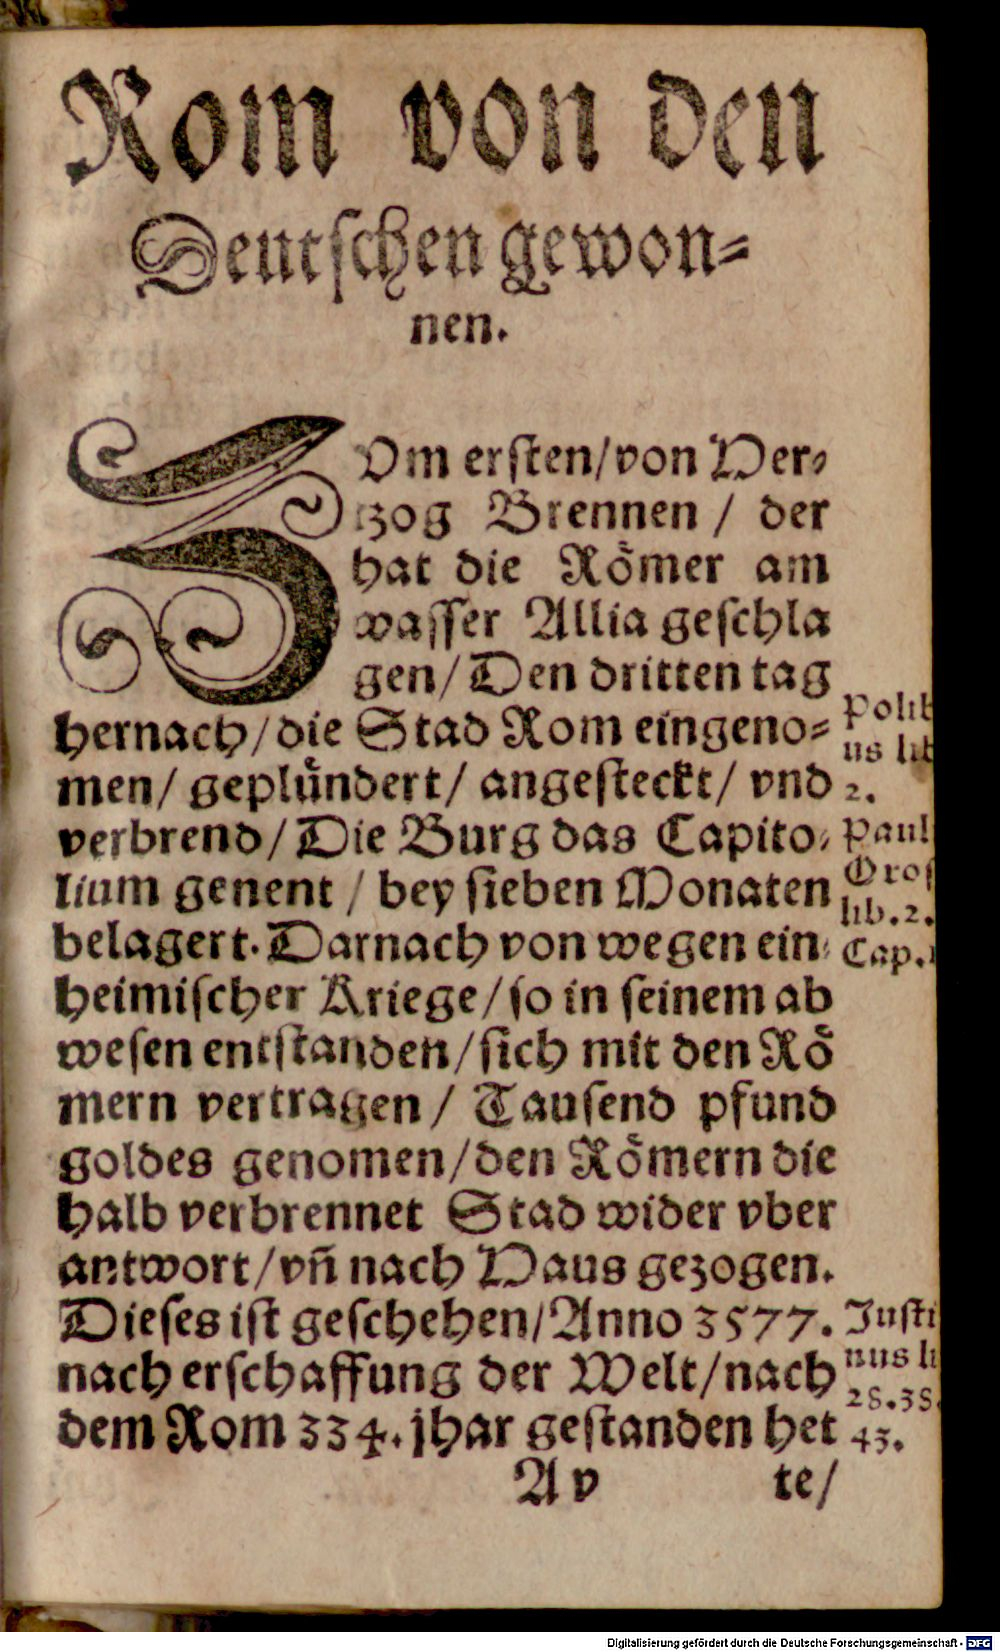 Rom von den
Deutſchen gewon⸗
nen.
ZVm erſten/von Her⸗
tzog Brennen / der
hat die Roͤmer am
waſſer Allia geſchla
gen/ Den dritten tag
hernach/die Stad Rom eingeno⸗
men/ gepluͤndert/ angeſteckt/ vnd
verbrend/ Die Burg das Capito⸗
lium genent / bey ſieben Monaten
belagert. Darnach von wegen ein⸗
heimiſcher Kriege/ſo in ſeinem ab
weſen entſtanden/ſich mit den Roͤ
mern vertragen / Tauſend pfund
goldes genomen/den Roͤmern die
halb verbrennet Stad wider vber
antwort/vñ nach Haus gezogen.
Dieſes iſt geſchehen/Anno 3577.
nach erſchaffung der Welt/nach
dem Rom 334. jhar geſtanden het
A v te/
Polib
us lib
2.
Paul
Oroſ
lib.2.
Cap.
Juſti
nus li
28.38.
43.
Digitalisierung gefördert durch die Deutsche Forschungsgemeinschaft - DFG